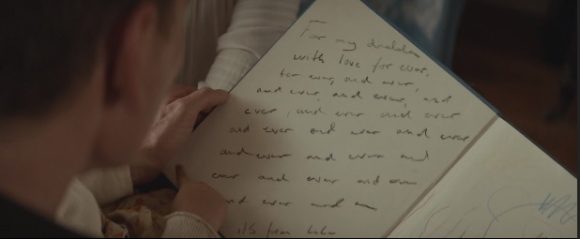 For my
with love for ever,
for ever, and ever,
and ever, and ever, and
ever, and ever and ever
and ever and ever and ever
and ever and ever and
ever and ever and
and ever and